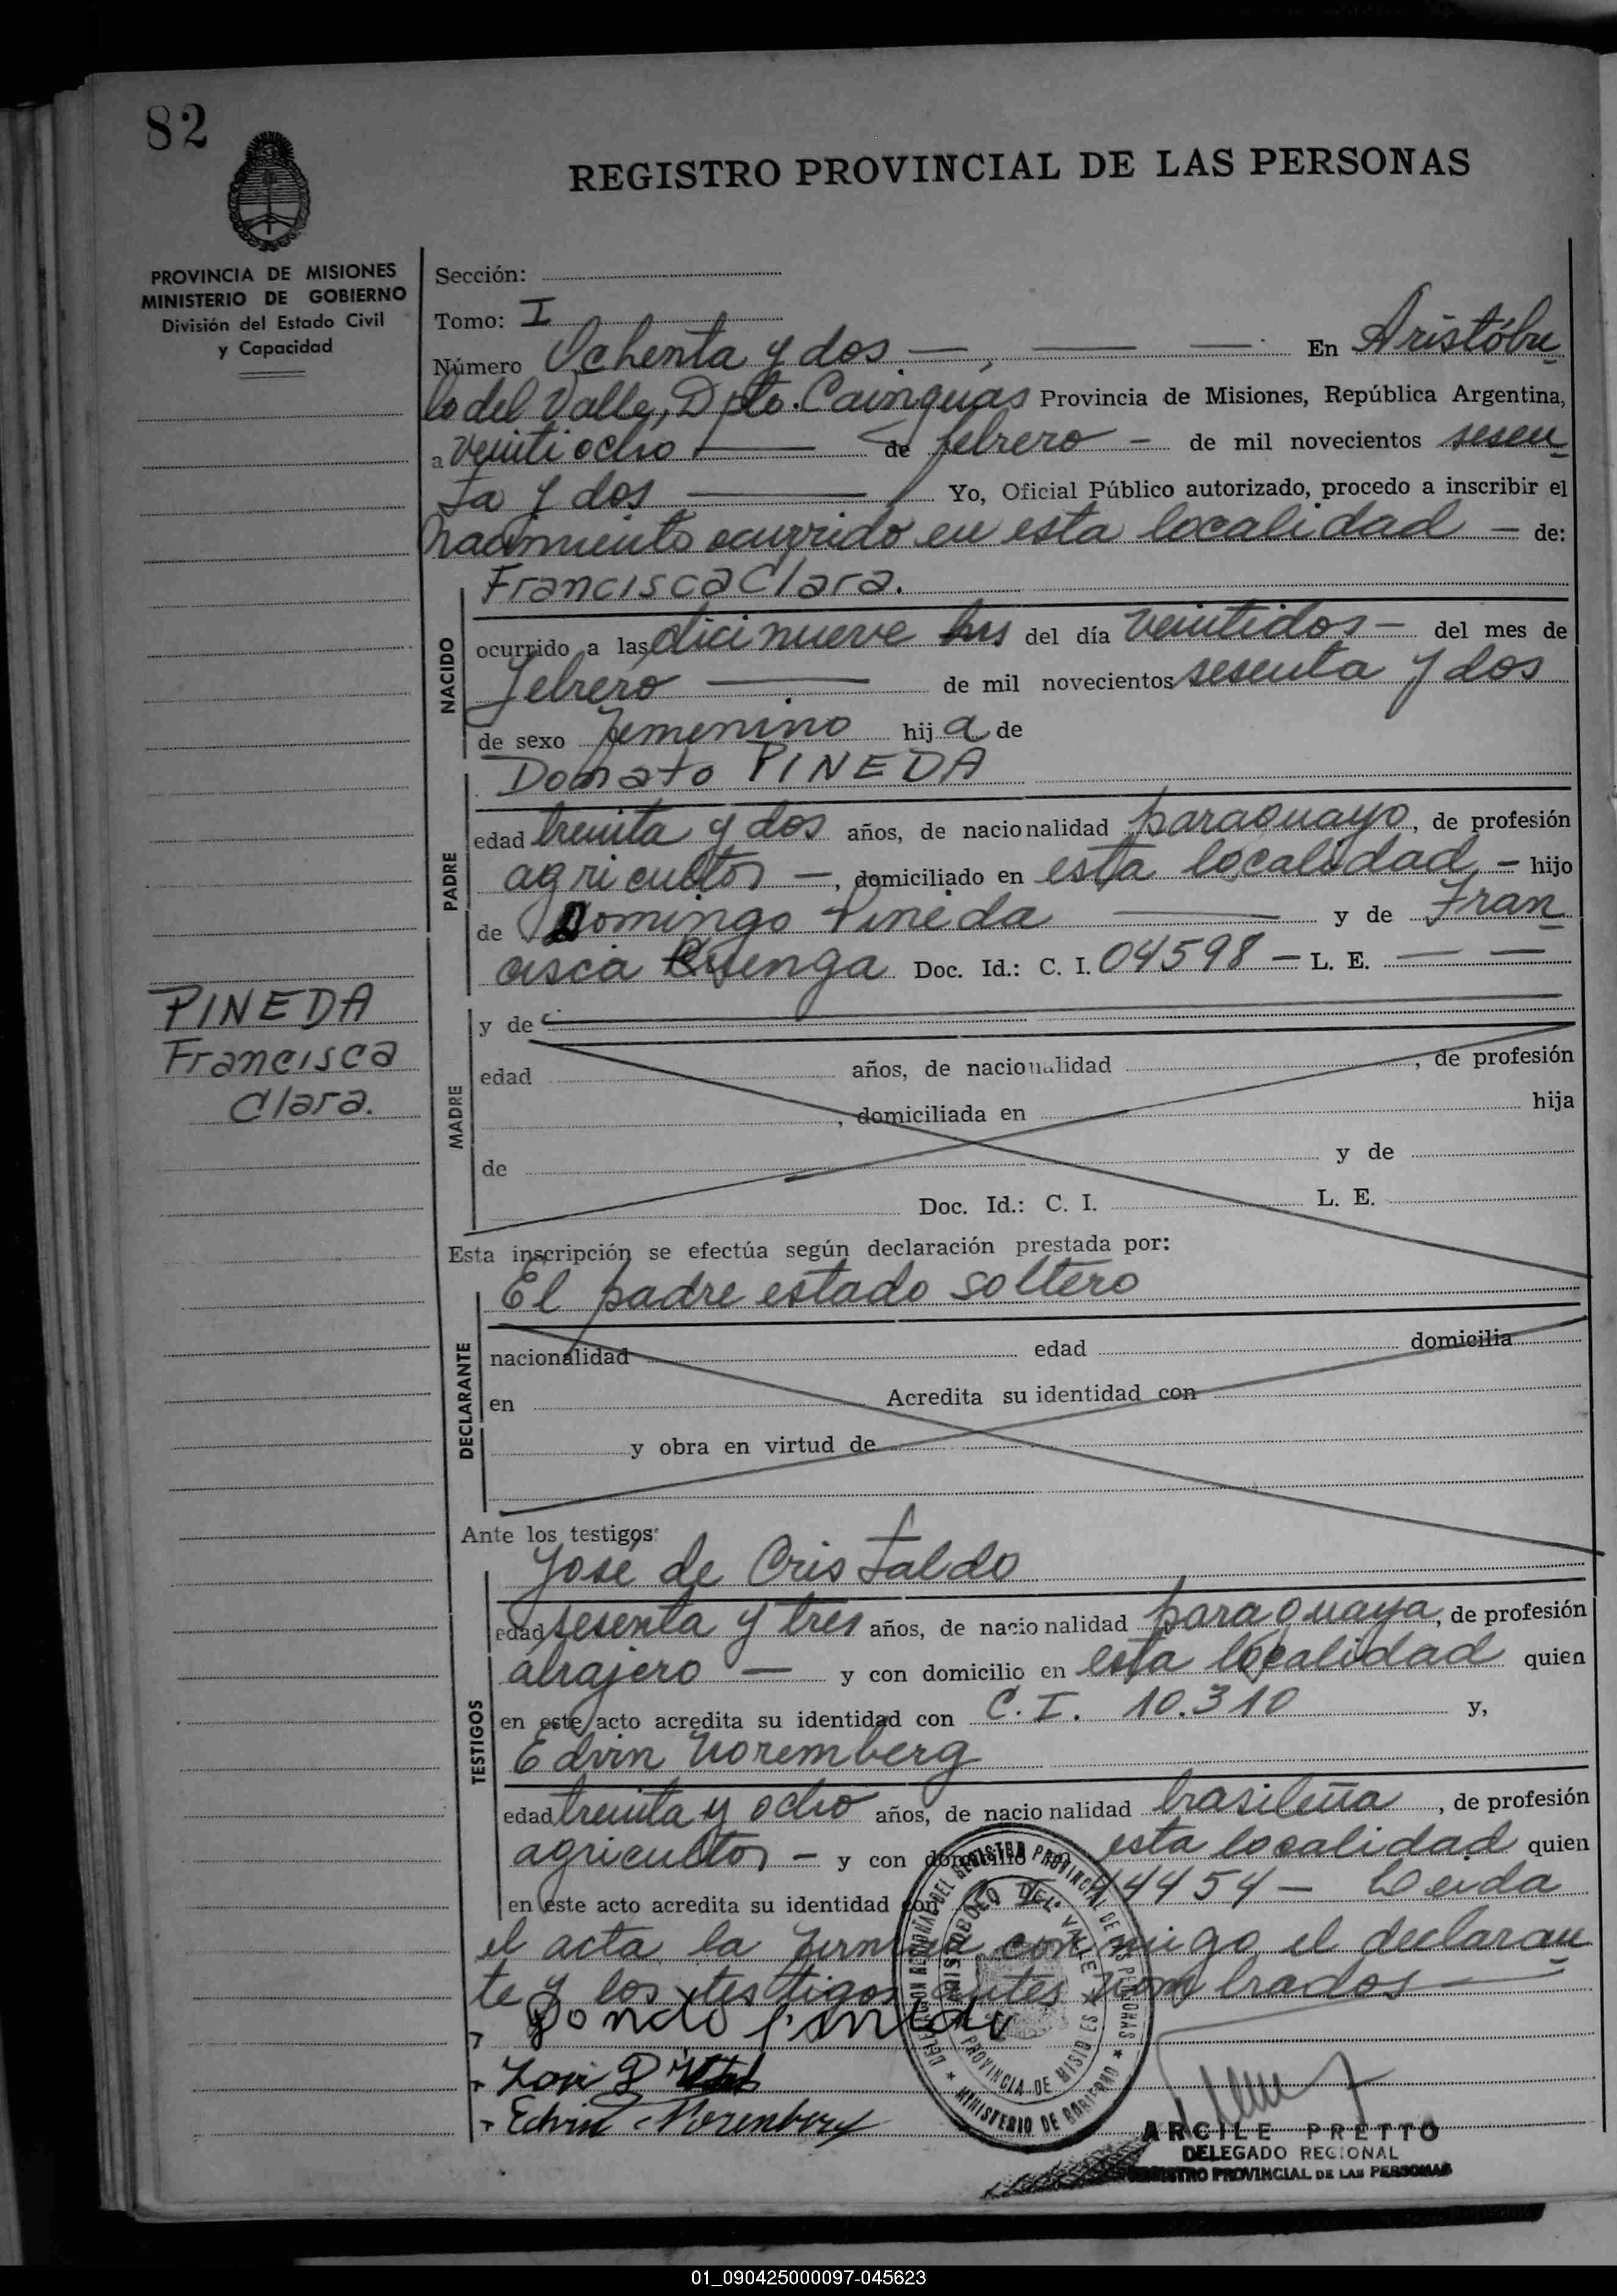 82
REGISTRO PROVINCIAL DE LAS PERSONAS
PROVINCIA DE MISIONES
MINISTERIO DE GOBIERNO
División del Estado Civil
y Capacidad
Sección:
Tomo: I
Número Ochenta y dos. —, — — En Aristóbu
lo del Valle, Dpto. Cainguas Provincia de Misiones, República Argentina,
a veintiocho — de febrero — de mil novecientos sesen
ta y dos — Yo, Oficial Público autorizado, procedo a inscribir el
nacimiento ocurrido en esta localidad — de:
NACIDO
Francisca Clara.
ocurrido a las dicinueve hrs del día veintidos — del mes de
febrero — de mil novecientos sesenta y dos
de sexo femenino hija de
PADRE
Donato PINEDA
edad treinta y dos años, de nacionalidad paraguayo, de profesión
agricultor —, domiciliado en esta localidad — hijo
de Domingo Pineda — y de Fran
cisca Doc. Id.: C. I. 04598 — L. E. — —
PINEDA
Francisca
Clara.
MADRE
y de
edad años, de nacionalidad , de profesión
, domiciliada en hija
de y de
Doc. Id.: C. I. L. E.
Esta inscripción se efectúa según declaración prestada por:
DECLARANTE
El padre estado soltero
nacionalidad edad domicilia
en Acredita su identidad con
y obra en virtud de
Ante los testigos:
TESTIGOS
José de Cristaldo
edad sesenta y tres años, de nacionalidad paraguaya, de profesión
alrajero — y con domicilio en esta localidad quien
en este acto acredita su identidad con C. I. 10.310 y,
Edvin Noremberg
edad treinta y ocho años, de nacionalidad brasileña, de profesión
agricultor — y con domicilio en esta localidad quien
en este acto acredita su identidad con 44454 — Leida
el acta la firman conmigo el declaran
te y los testigos antes nombrados —
Edvin Norenberg
DELEGACION REGIONAL DEL REGISTRO PROVINCIAL DE LAS PERSONAS
ARISTOBULO DEL VALLE
PROVINCIA DE MISIONES
★ MINISTERIO DE GOBIERNO ★
ARCILE PRETTO
DELEGADO REGIONAL
REGISTRO PROVINCIAL DE LAS PERSONAS
01_090425000097-045623